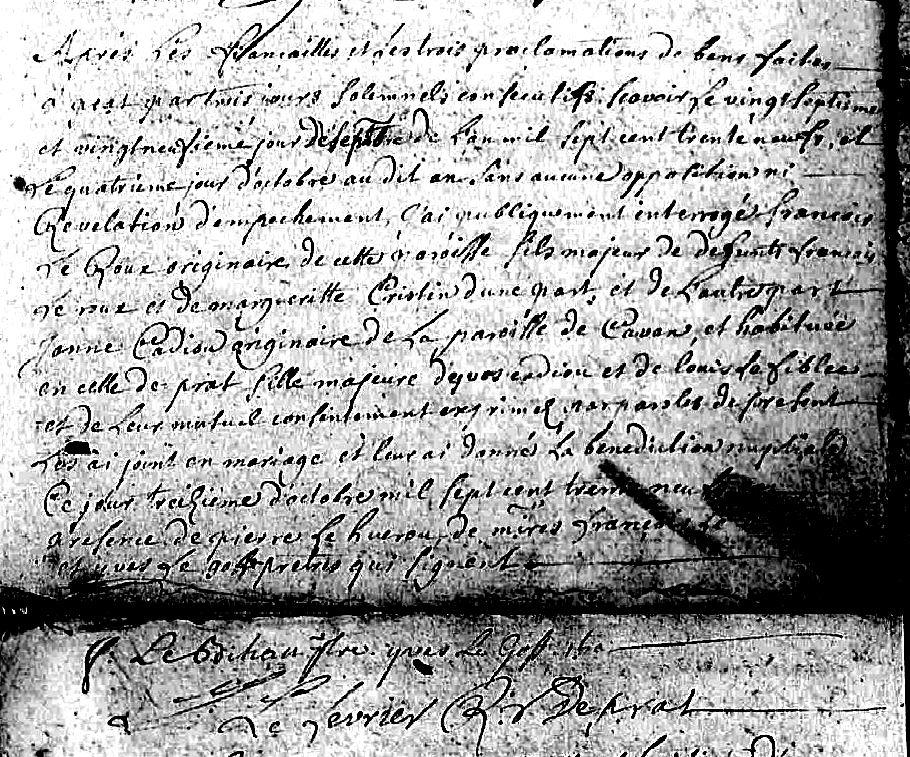 Après les fiançailles et les trois proclamations de bans faites
a prat par trois jours solemnels consecutifs scavoir le vingt septieme
et vingt neufieme jour de septbre de l'an mil sept cent trente neuf, et
le quatrieme jour d'octobre au dit an sans aucune opposition ni
Revelation d'empechement, j'ai publiquement interrogé francois
Le Roux originaire de cette paroisse fils majeur de defunts francois
Le roux et de margueritte Cristin d'une part, et de l'autre part
Janne Cadiou originaire de La paroisse de Cavan, et habituée
en celle de prat fille majeure de yves cadiou et de louis
et de Leur mutuel consentement exprimé par paroles de present
Les ai joint en mariage et leur ai donné la benediction nuptiale
Ce jour treizieme d'octobre mil sept cent trente neuf
presence de pierre Le huerou, de françois Le
et yves Le goff pretres qui signent
yves Le Goff
Le Levrier Rr De prat